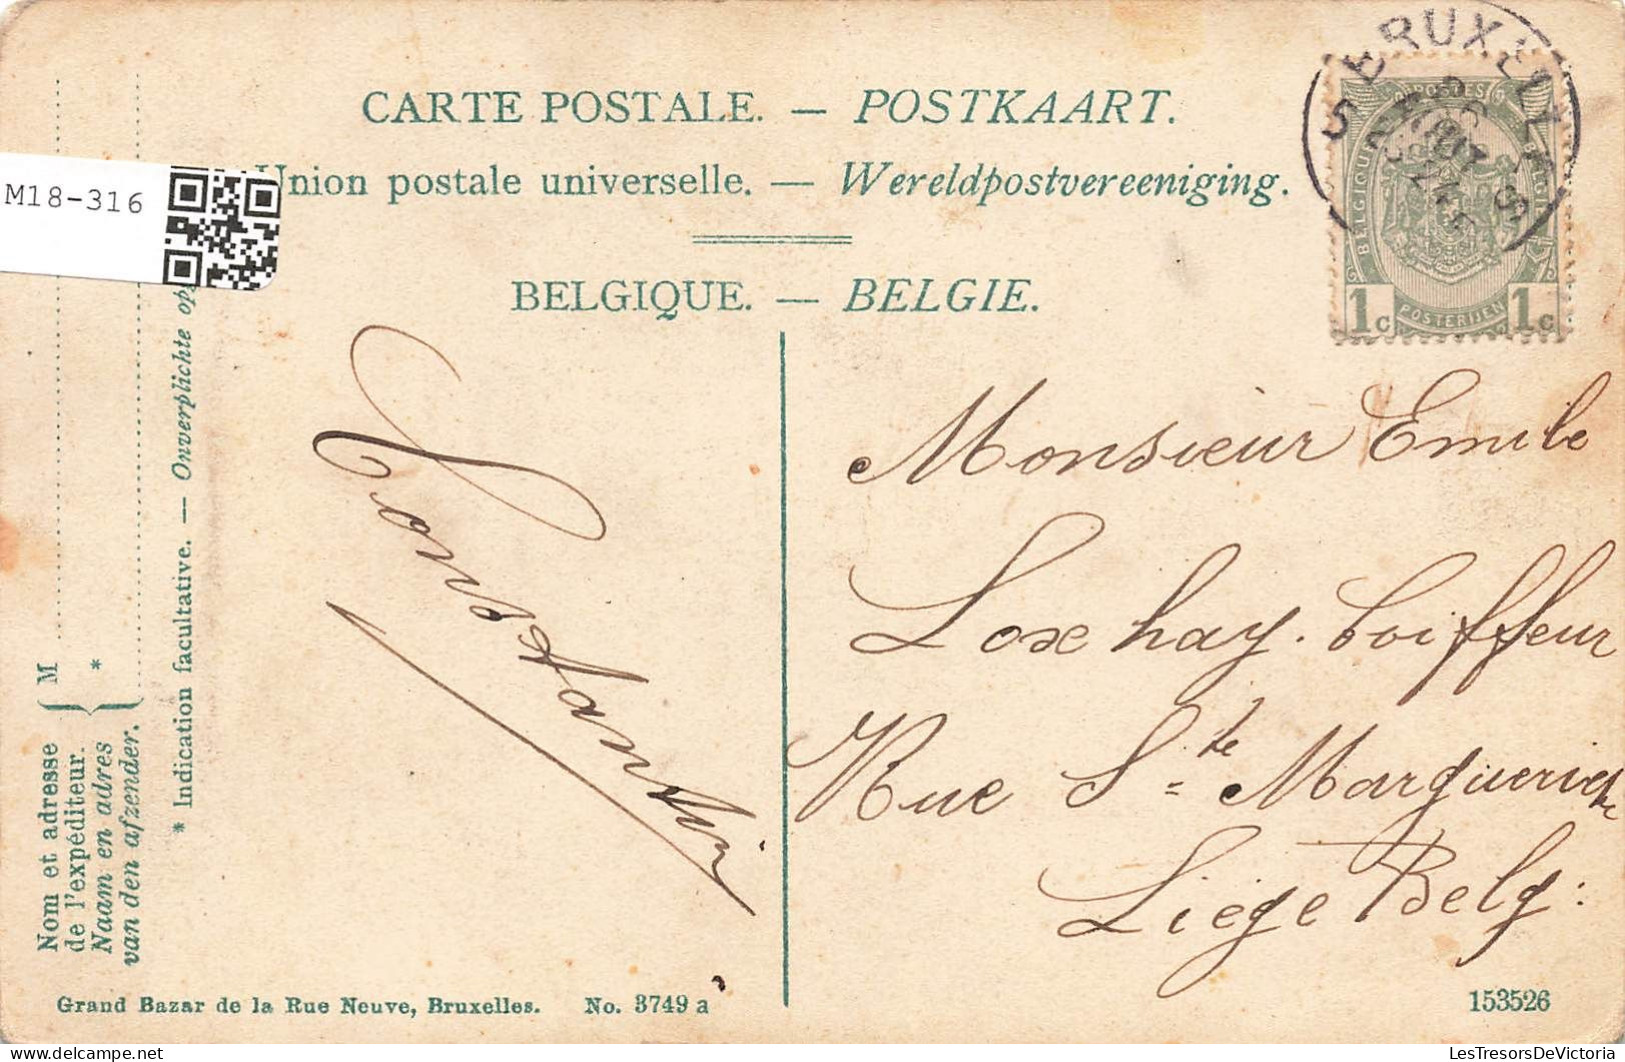 CARTE POSTALE. — POSTKAART.
Union postale universelle. — Wereldpostvereeniging.
BELGIQUE. — BELGIE.
M18-316
BRUXELLES
POSTES
BELGIQUE
BELGIË
POSTERIJEN
1c 1c
Nom et adresse
de l'expéditeur.
Naam en adres
van den afzender.
M
*
* Indication facultative. — Onverplichte op
Constantin
Monsieur Emile
Loxhay. Coiffeur
Rue Ste Marguerite
Liége Belg:
Grand Bazar de la Rue Neuve, Bruxelles. No. 3749 a
153526
LesTresorsDeVictoria